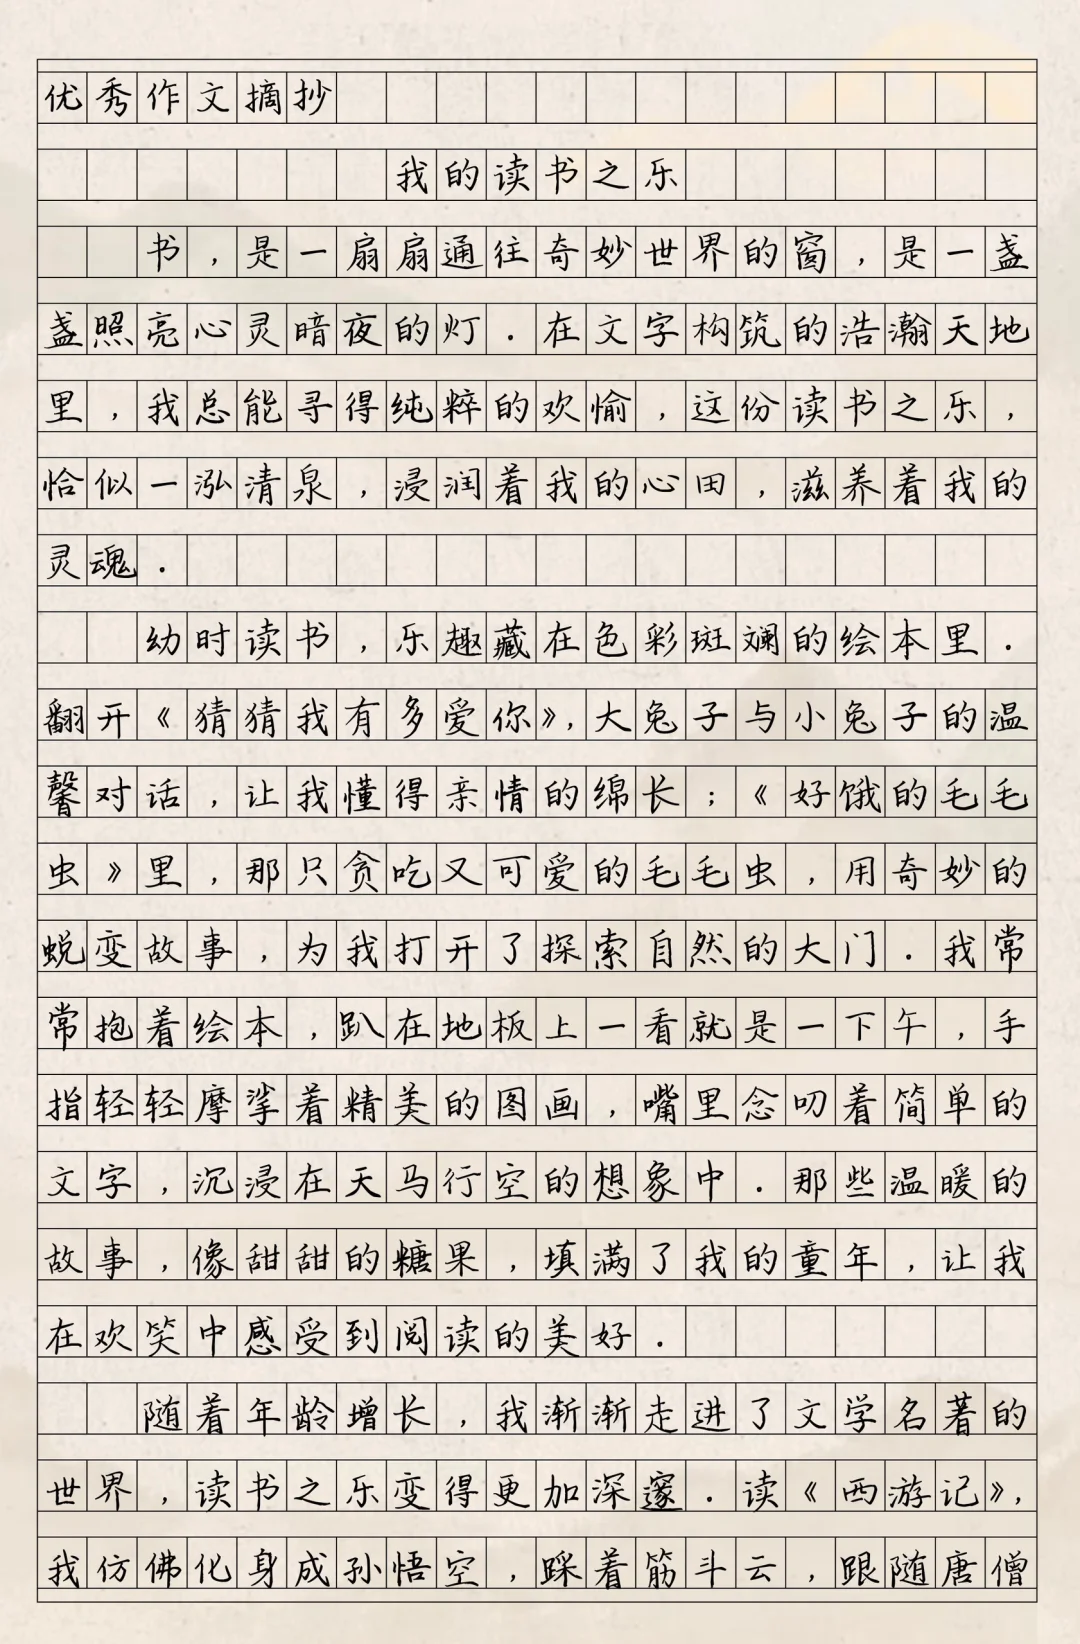 优秀作文摘抄
我的读书之乐
书,是一扇扇通往奇妙世界的窗,是一盏
盏照亮心灵暗夜的灯.在文字构筑的浩瀚天地
里,我总能寻得纯粹的欢愉,这份读书之乐,
恰似一泓清泉,浸润着我的心田,滋养着我的
灵魂.
幼时读书,乐趣藏在色彩斑斓的绘本里.
翻开《猜猜我有多爱你》,大兔子与小兔子的温
馨对话,让我懂得亲情的绵长;《好饿的毛毛
虫》里,那只贪吃又可爱的毛毛虫,用奇妙的
蜕变故事,为我打开了探索自然的大门.我常
常抱着绘本,趴在地板上一看就是一下午,手
指轻轻摩挲着精美的图画,嘴里念叨着简单的
文字,沉浸在天马行空的想象中.那些温暖的
故事,像甜甜的糖果,填满了我的童年,让我
在欢笑中感受到阅读的美好.
随着年龄增长,我渐渐走进了文学名著的
世界,读书之乐变得更加深邃.读《西游记》,
我仿佛化身成孙悟空,踩着筋斗云,跟随唐僧